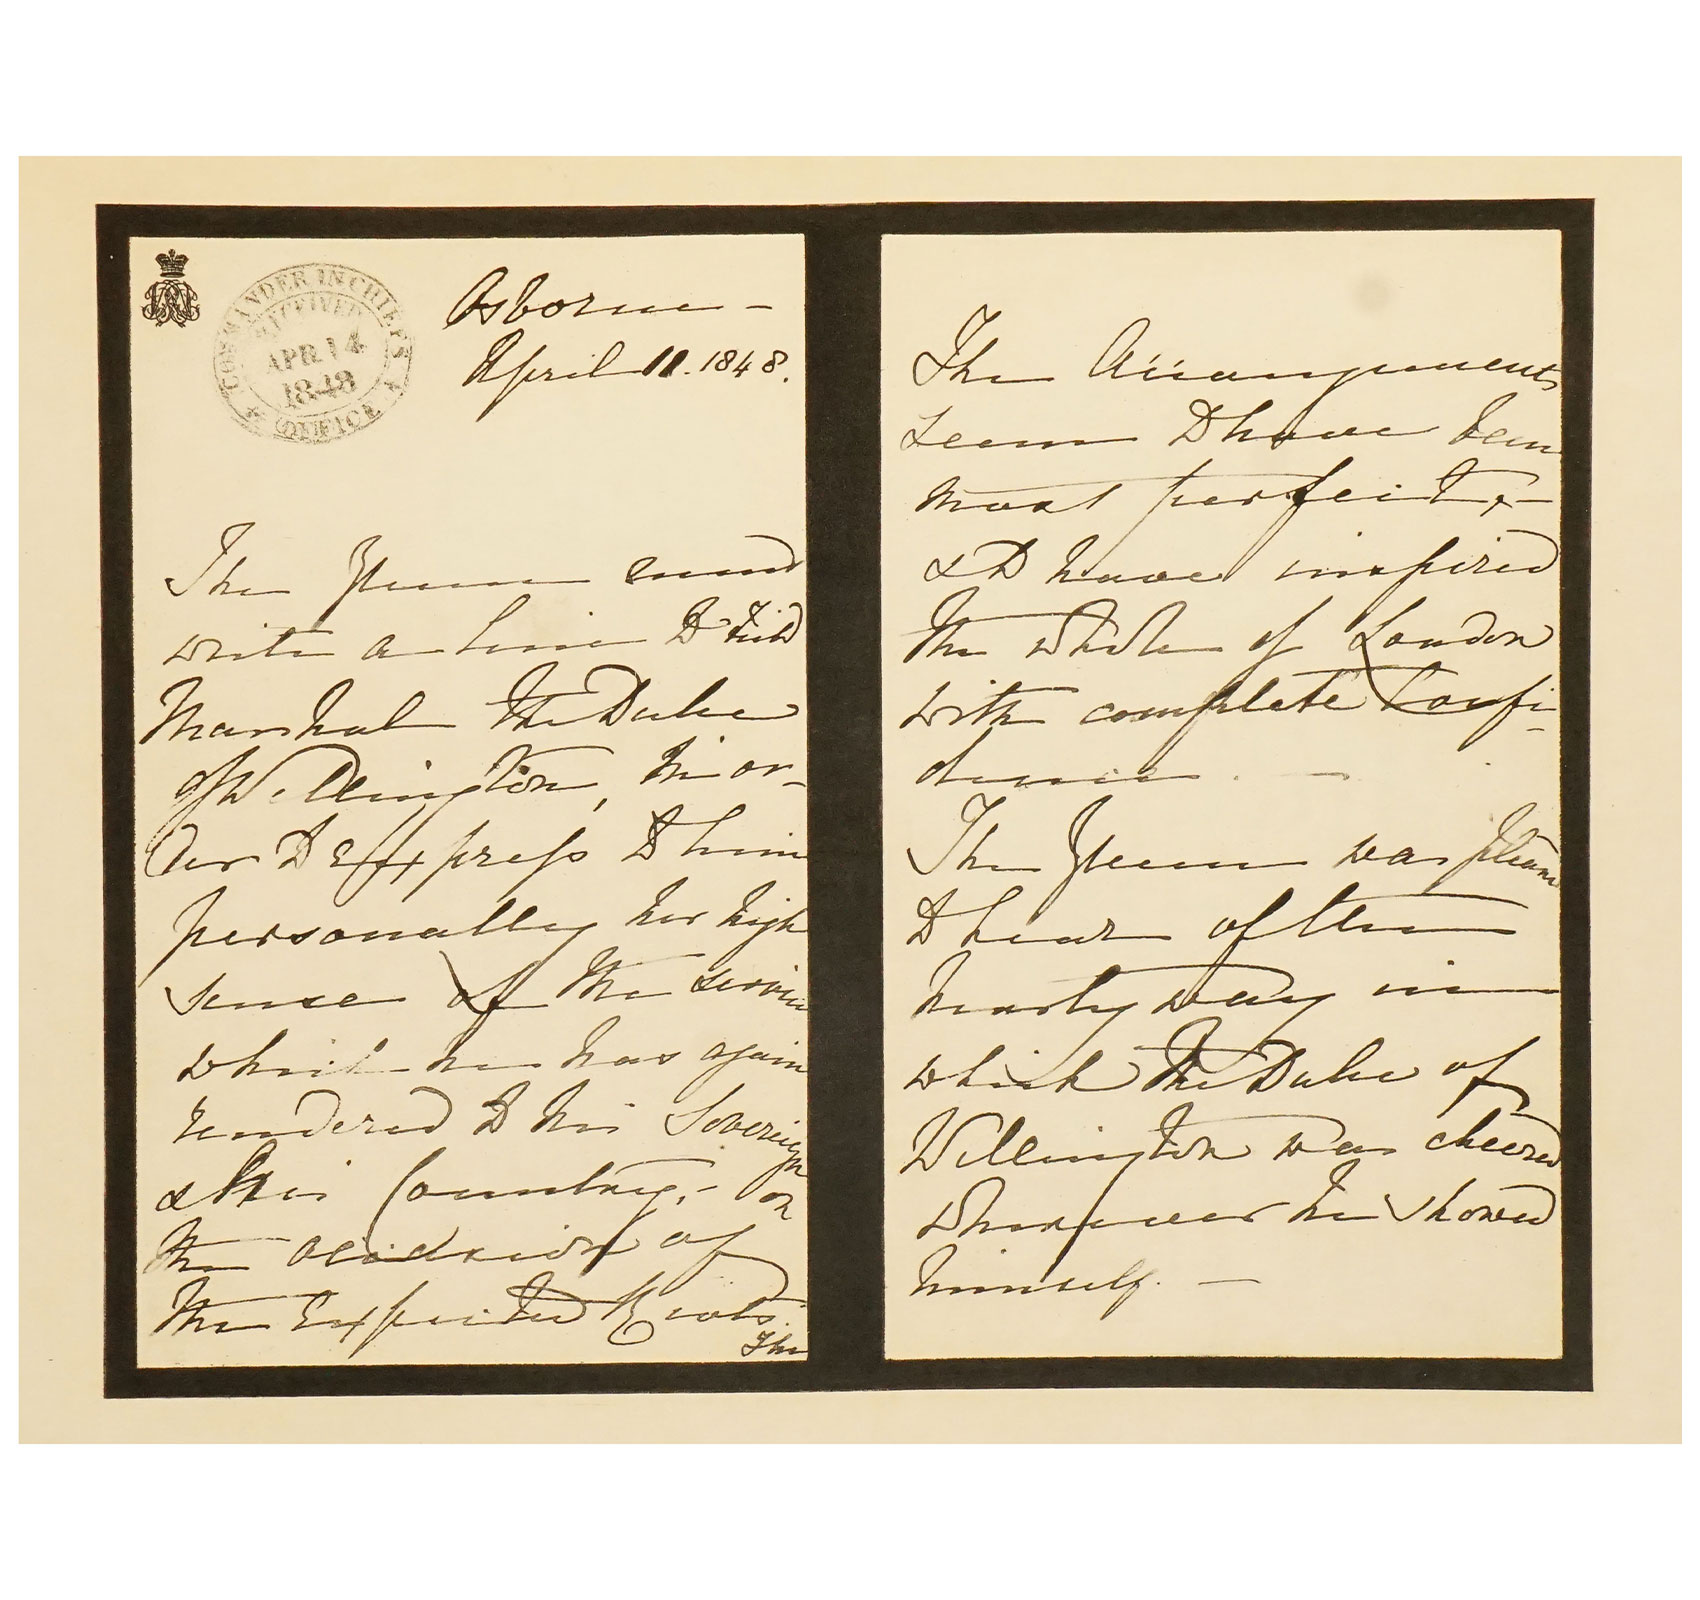 COMMANDER IN CHIEF'S
RECEIVED
APR. 14
1848
OFFICE
Osborne –
April 11. 1848.
The Queen must
write a line to Field
Marshal the Duke
of Wellington, in or-
der to express to him
personally her high
sense of the service
which he has again
rendered to his Sovereign
& his Country, – on
the occasion of
the expected Riots.
The
The Arrangements
seem to have been
most perfect, –
& to have inspired
the whole of London
with complete Confi-
dence. —
The Queen was pleased
to hear of the
hearty way in
which the Duke of
Wellington was cheered
wherever he showed
himself. —